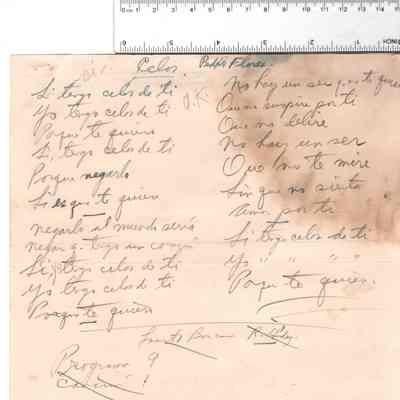 Celos. Pedro Flores.
O.K.
Si tengo celos de ti
Yo tengo celos de ti
Porque te quiero
Si, tengo celos de ti
Porque negarlo
Si es que te quiero
negarlo al mundo sería
negar q. tengo un
Si, tengo celos de ti
Yo tengo celos de ti
Porque te quiero
No hay un ser que te quiera
Que no suspire por ti
Que no delire
No hay un ser
Que no te mire
Sin que no sienta
amor por ti
Si tengo celos de ti
Yo " " "
Porque te quiero.
Programa 9